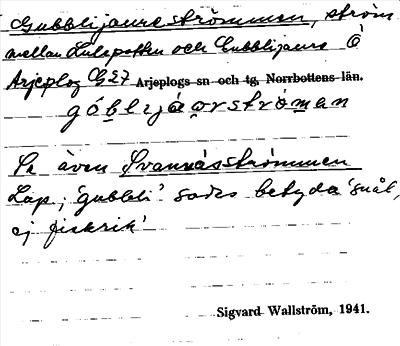 Gubblijaureströmmen, ström
mellan Lulepotten och Gubblijaure Ö
Arjeplog G27 Arjeplogs sn och tg, Norrbottens län.
góblijáorströman
Se även Svannäsströmmen
Lap; 'gubbli' sades betyda 'snål,
ej fiskrik'
Sigvard Wallström, 1941.